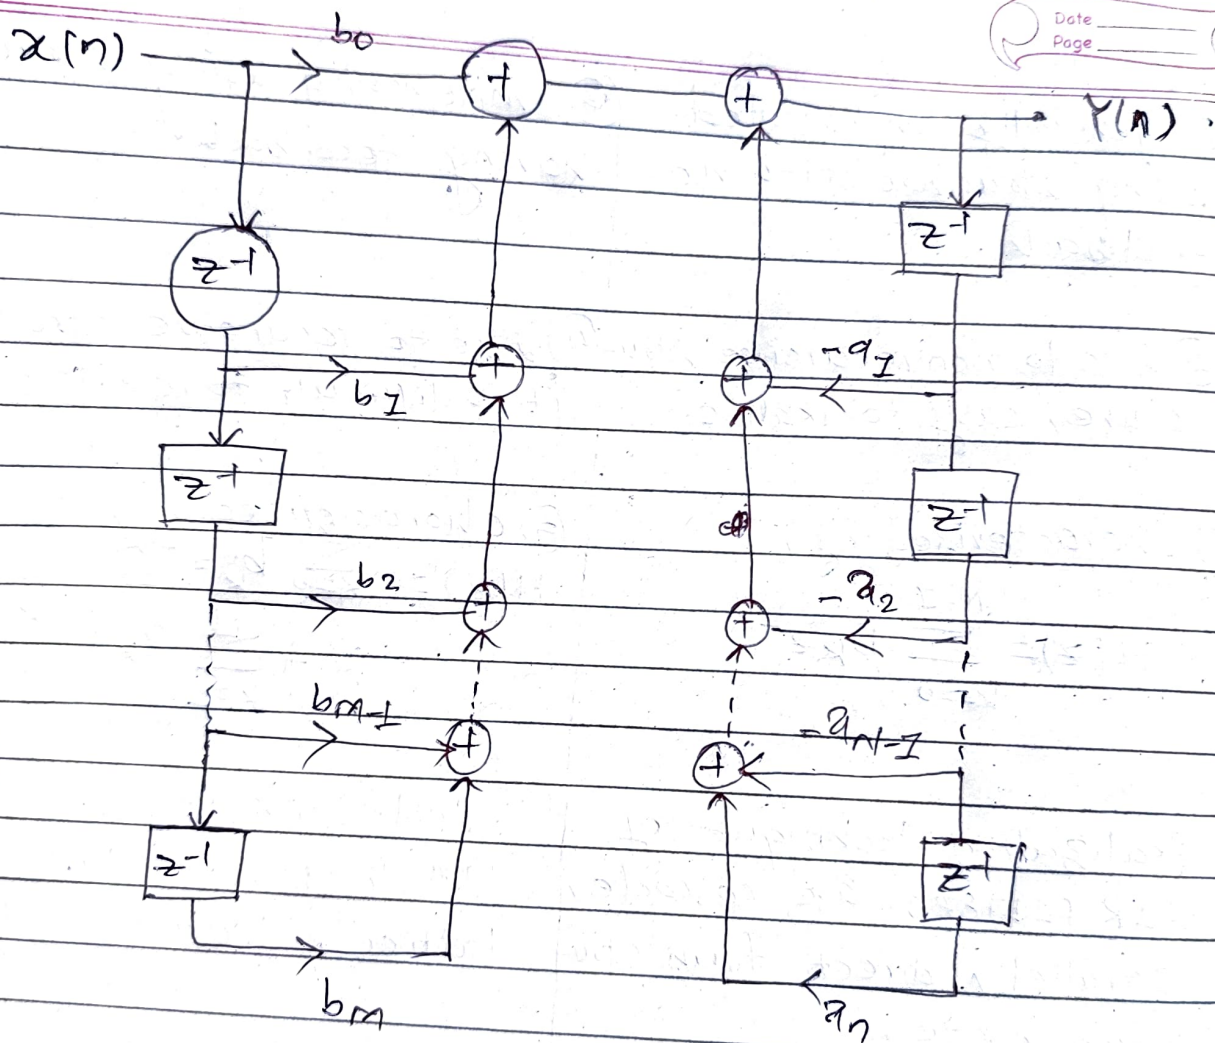 Date
Page
x(n) b0 + + Y(n).
z-1 z-1
b1 + + -a1
z-1 z-1
b2 + + -a2
bM-1 + + -aN-1
z-1 z-1
bM an